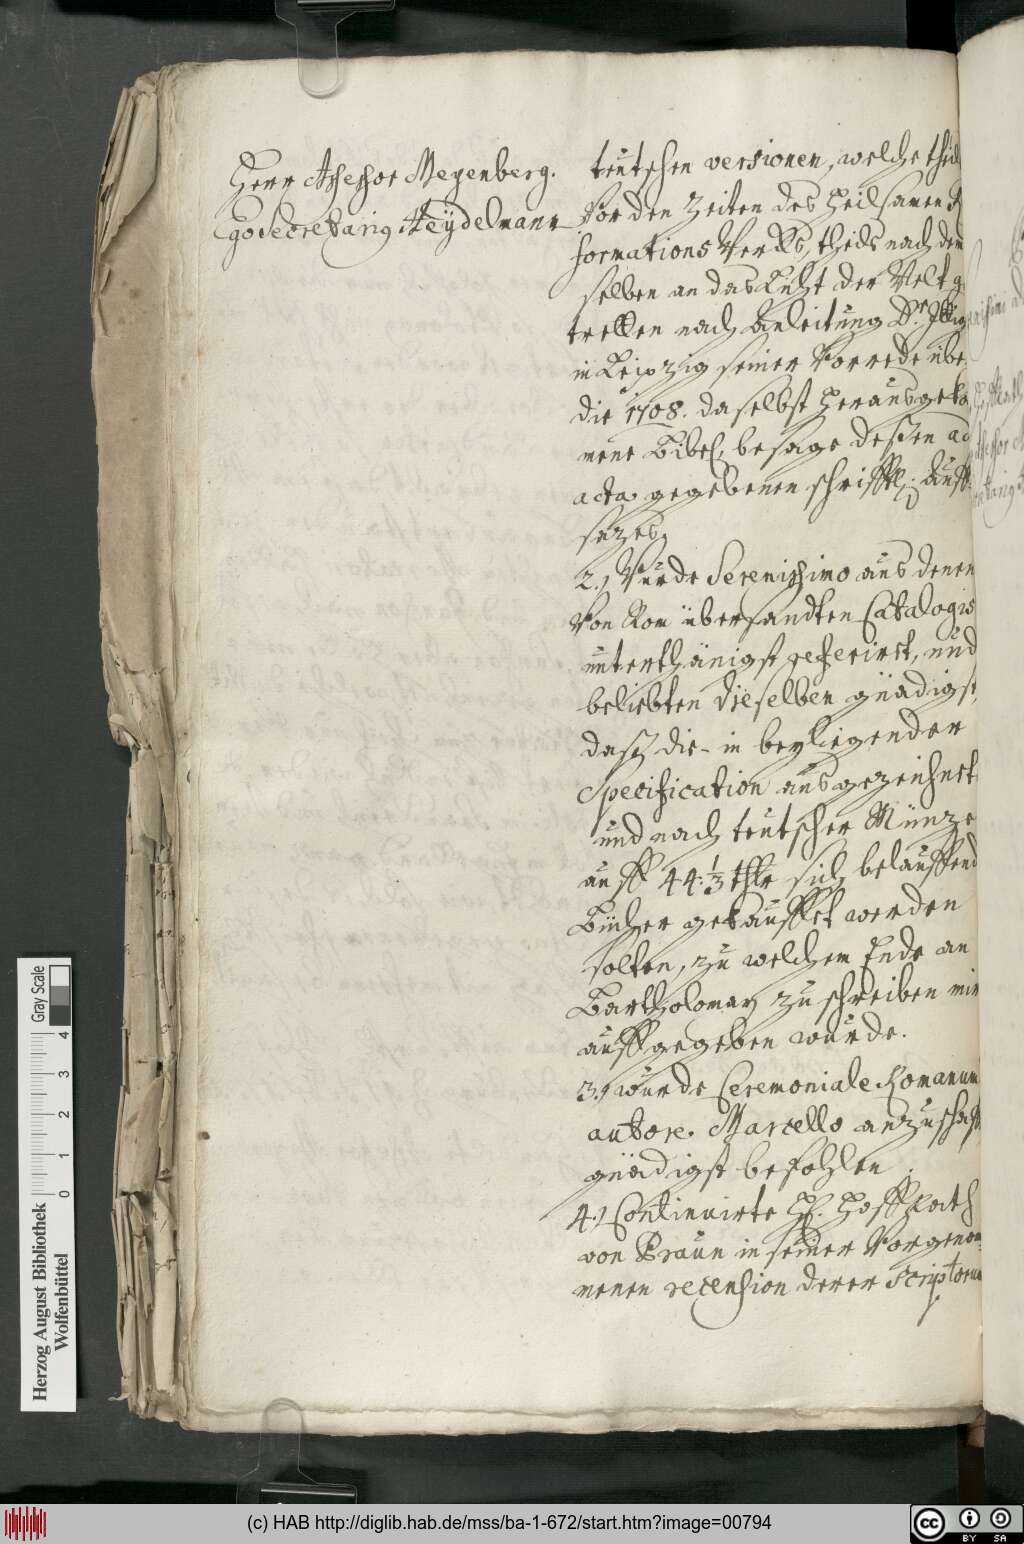 Herr Assessor Meyenberg.
Secretarius Heÿdelmann
teutschen versionen, welche theils
vor den Zeiten des heilsamen
formations Wercks, theils nach dem
selben an das Licht der Welt
tretten nach Anleitung Dr.
in Leipzig seiner Vorrede übe
die 1708. daselbst herausgeko
mene Bibel, besage deßen ad
acta gegebenen schrifftl: Auff
sazes.
2.) Wurde Serenissimo aus denen
von Rom übersandten Catalogis
unterthänigst referirt, und
beliebten dieselben gnädigst,
dasz die in beyliegender
Specification ausgezeichnet
und nach teutscher Müntze
auff 44: 1/3 thlr sich belauffend
Bücher gekauffet werden
solten, zu welchem Ende an
Bartholomæi zu schreiben mir
auffgegeben wurde.
3.) wurde Ceremoniale Romanum
autore Marcello anzuschaff
gnädigst befohlen
4.) Continuirte H. HoffRath
von Praun in seiner vorgenom
menen recension derer Scriptorum
Herzog August Bibliothek
Wolfenbüttel
0 1 2 3 4
Gray Scale
(c) HAB http://diglib.hab.de/mss/ba-1-672/start.htm?image=00794
cc BY SA